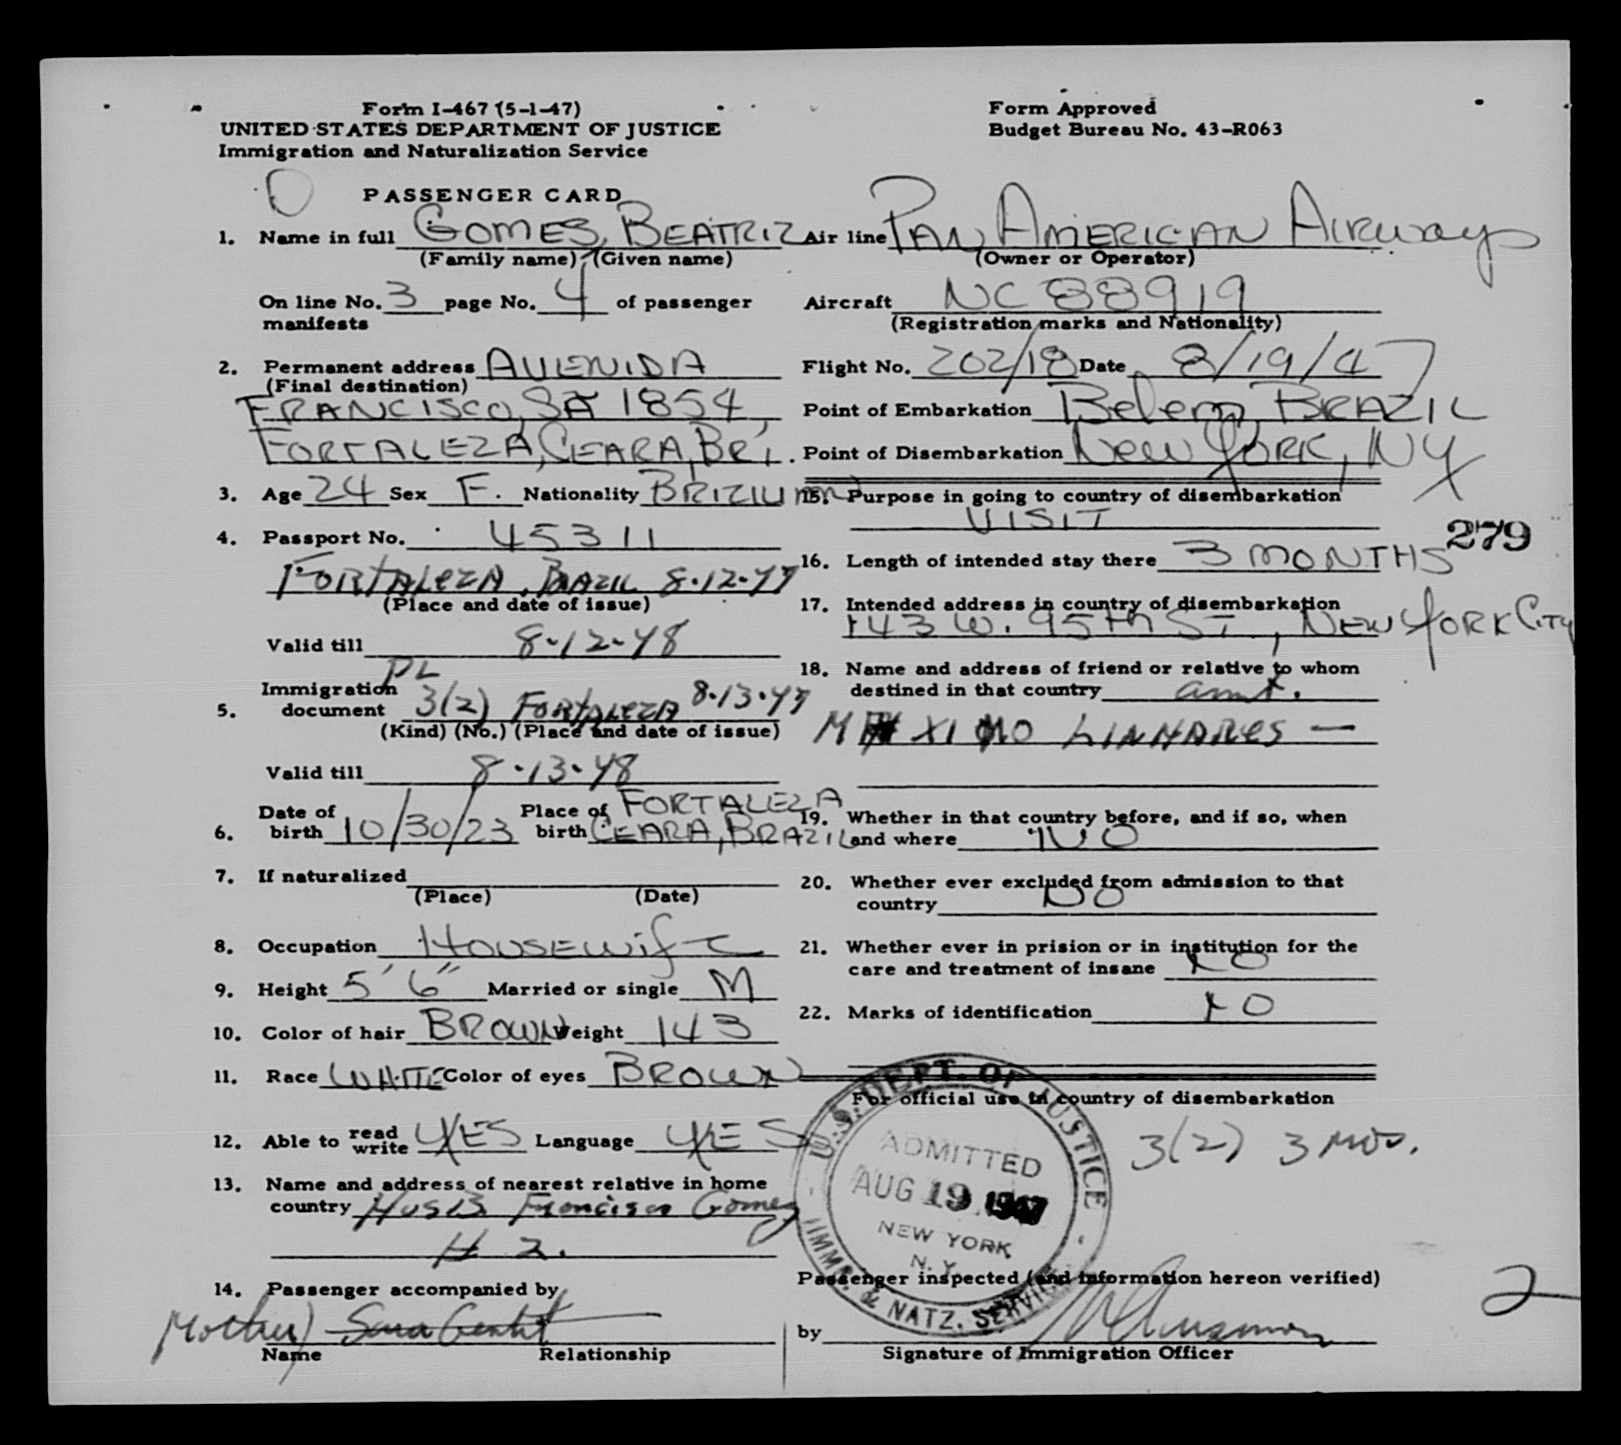 Form I-467 (5-1-47)
UNITED STATES DEPARTMENT OF JUSTICE
Immigration and Naturalization Service
Form Approved
Budget Bureau No. 43-R063
PASSENGER CARD
1. Name in full GOMES, BEATRIZ
(Family name) (Given name)
On line No. 3 page No. 4 of passenger
manifests
2. Permanent address AVENIDA
(Final destination)
FRANCISCO SA 1854,
FORTALEZA, CEARA, BR.
3. Age 24 Sex F. Nationality
4. Passport No. 45311
FORTALEZA, BRAZIL 8-12-47
(Place and date of issue)
Valid till 8-12-48
PL
Immigration
5. document 3(2) FORTALEZA 8-13-47
(Kind) (No.) (Place and date of issue)
Valid till 8-13-48
6. Date of birth 10/30/23 Place of birth FORTALEZA
CEARA, BRAZIL
7. If naturalized
(Place) (Date)
8. Occupation HOUSEWIFE
9. Height 5' 6" Married or single M
10. Color of hair BROWN Weight 143
11. Race WHITE Color of eyes BROWN
12. Able to read write YES Language YES
13. Name and address of nearest relative in home
country HUSB Francisco Gomes
# 2.
14. Passenger accompanied by
Mother) Sara
Name Relationship
Air line PAN AMERICAN AIRWAYS
(Owner or Operator)
Aircraft NC 88919
(Registration marks and Nationality)
Flight No. 202/18 Date 8/19/47
Point of Embarkation Belem, BRAZIL
Point of Disembarkation NEW YORK, NY
15. Purpose in going to country of disembarkation
VISIT
279
16. Length of intended stay there 3 MONTHS
17. Intended address in country of disembarkation
143 W. 95TH ST, NEW YORK CITY
18. Name and address of friend or relative to whom
destined in that country
MAXIMO LINHARES —
19. Whether in that country before, and if so, when
and where NO
20. Whether ever excluded from admission to that
country NO
21. Whether ever in prision or in institution for the
care and treatment of insane NO
22. Marks of identification NO
For official use in country of disembarkation
3(2) 3 MOS.
U.S. DEPT. OF JUSTICE
ADMITTED
AUG 19 1947
NEW YORK
N.Y.
IMM. & NATZ. SERVICE
Passenger inspected (and information hereon verified)
2
by
Signature of Immigration Officer